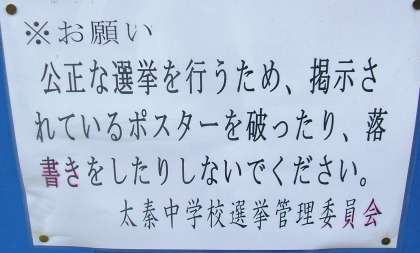 ※お願い
公正な選挙を行うため、掲示さ
れているポスターを破ったり、落
書きをしたりしないでください。
太秦中学校選挙管理委員会